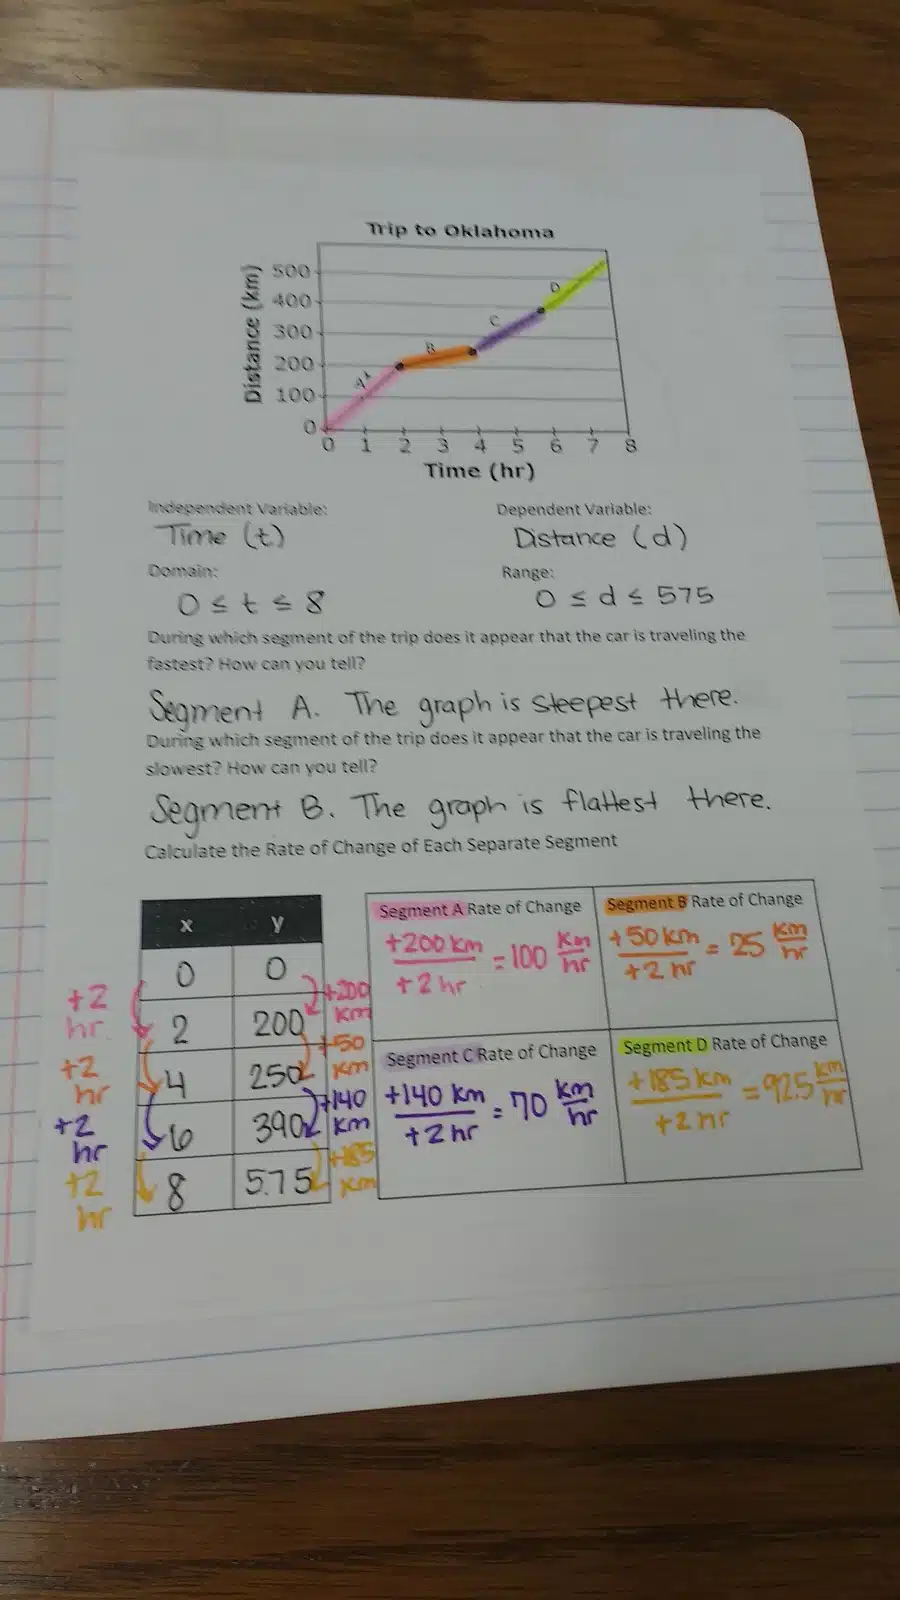 Trip to Oklahoma
Distance (km)
500
400
300
200
100
0
A
B
C
D
0 1 2 3 4 5 6 7 8
Time (hr)
Independent Variable: Dependent Variable:
Time (t) Distance (d)
Domain: Range:
0 ≤ t ≤ 8 0 ≤ d ≤ 575
During which segment of the trip does it appear that the car is traveling the
fastest? How can you tell?
Segment A. The graph is steepest there.
During which segment of the trip does it appear that the car is traveling the
slowest? How can you tell?
Segment B. The graph is flattest there.
Calculate the Rate of Change of Each Separate Segment
x y
0 0
2 200
4 250
6 390
8 575
+2
hr
+2
hr
+2
hr
+2
hr
+200
km
+50
km
+140
km
+185
km
Segment A Rate of Change
+200 km
+2 hr
= 100 km/hr
Segment B Rate of Change
+50 km
+2 hr
= 25 km/hr
Segment C Rate of Change
+140 km
+2 hr
= 70 km/hr
Segment D Rate of Change
+185 km
+2 hr
= 92.5 km/hr